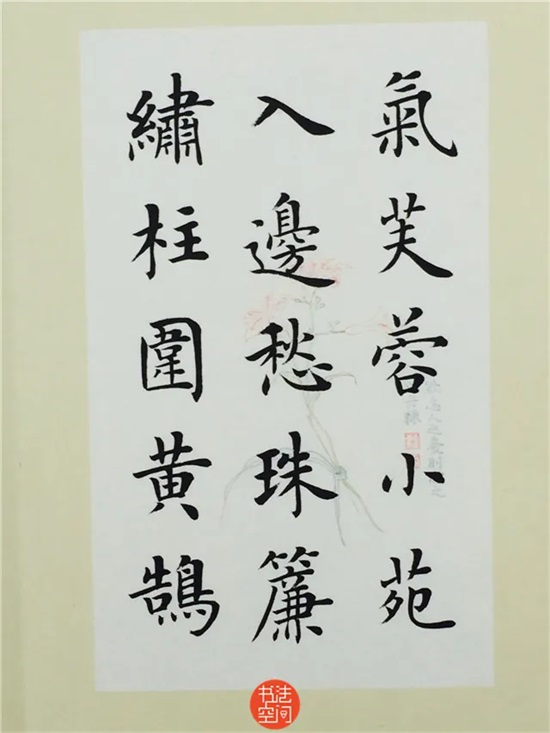 氣芙蓉小苑
入邊愁珠簾
繡柱圍黄鵠
书法
空间